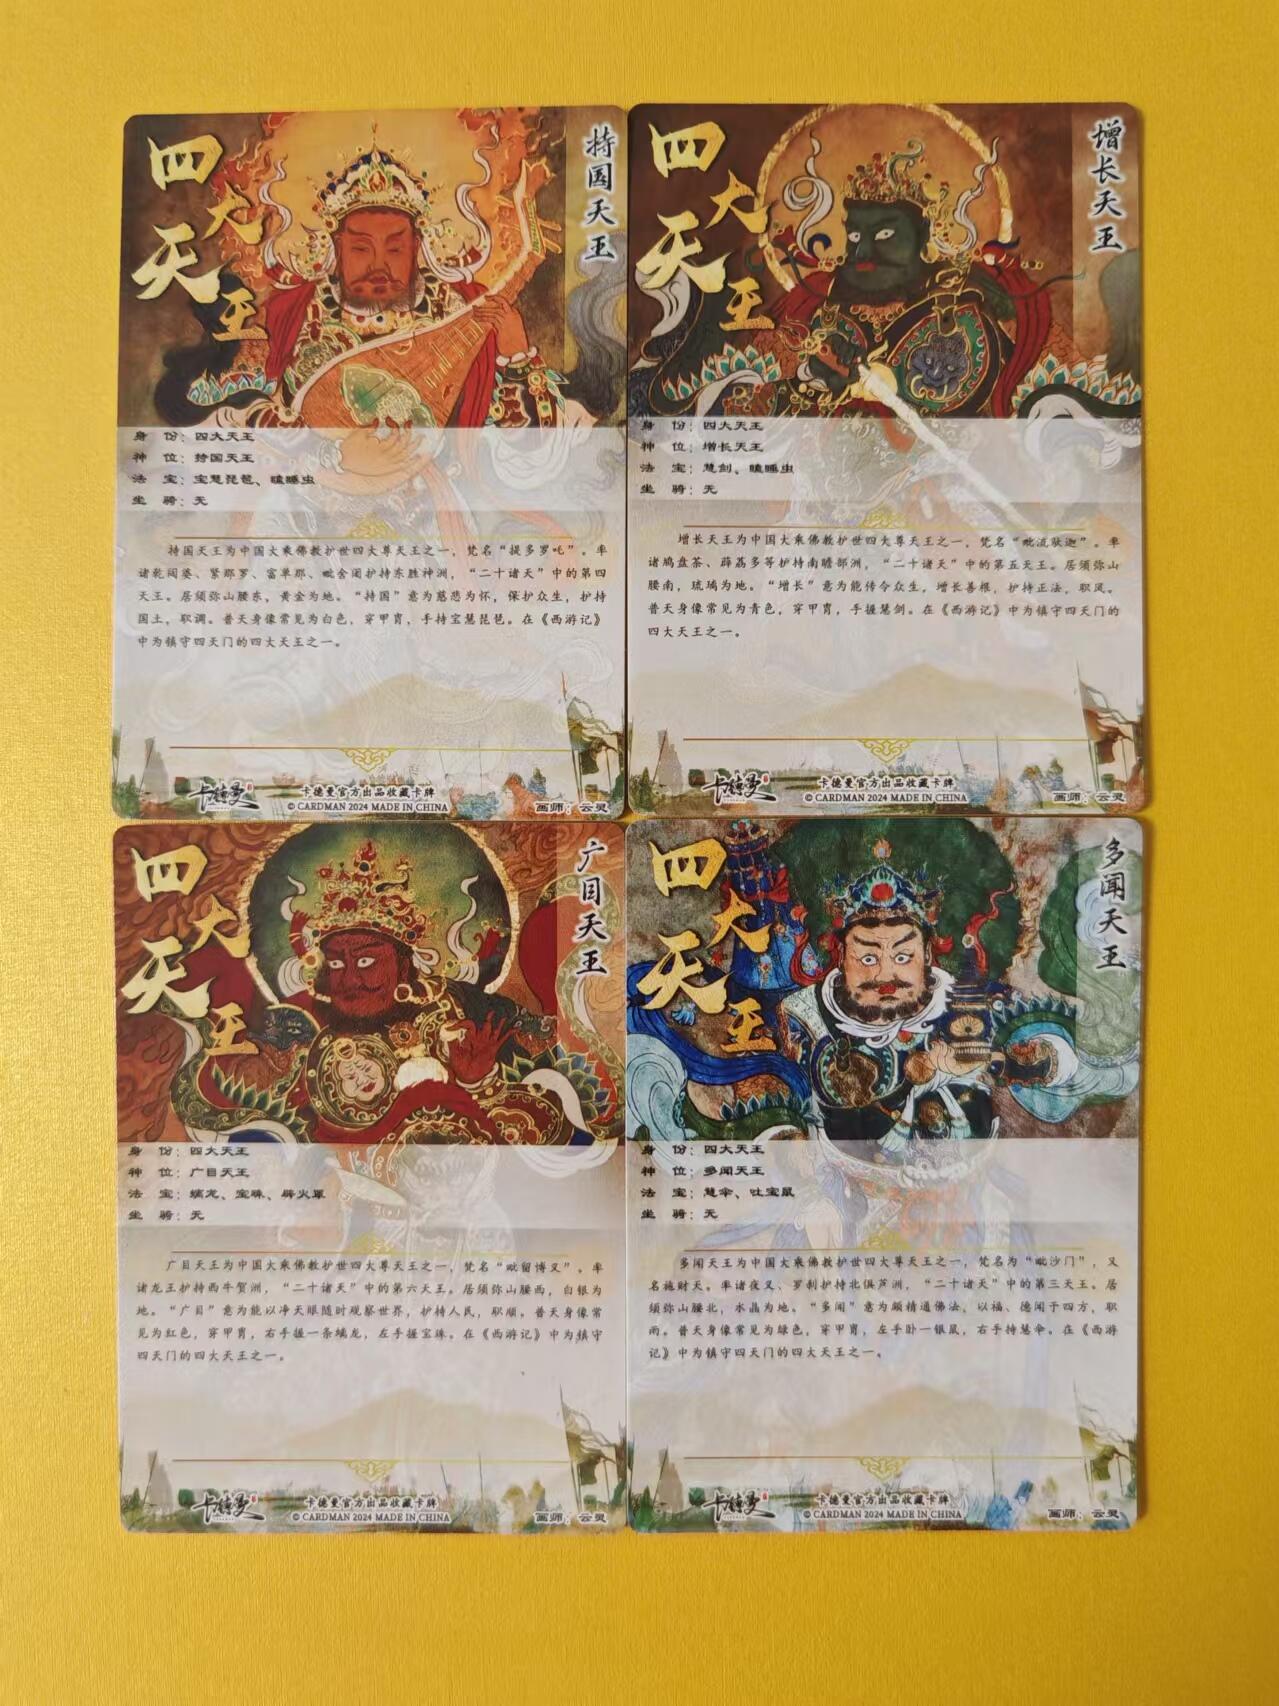 四大天王
持国天王
身 份：四大天王
神 位：持国天王
法 宝：宝慧琵琶、瞌睡虫
坐 骑：无
持国天王为中国大乘佛教护世四大尊天王之一，梵名“提多罗吒”。率
诸乾闼婆、紧那罗、富单那、毗舍阇护持东胜神洲，“二十诸天”中的第四
天王。居须弥山腰东，黄金为地。“持国”意为慈悲为怀，保护众生，护持
国土，职调。普天身像常见为白色，穿甲胄，手持宝慧琵琶。在《西游记》
中为镇守四天门的四大天王之一。
卡德曼
卡德曼官方出品收藏卡牌
© CARDMAN 2024 MADE IN CHINA
画师：云灵
四大天王
增长天王
身 份：四大天王
神 位：增长天王
法 宝：慧剑、瞌睡虫
坐 骑：无
增长天王为中国大乘佛教护世四大尊天王之一，梵名“毗流驮迦”。率
诸鸠盘荼、薜荔多等护持南瞻部洲，“二十诸天”中的第五天王。居须弥山
腰南，琉璃为地。“增长”意为能传令众生，增长善根，护持正法，职风。
普天身像常见为青色，穿甲胄，手握慧剑。在《西游记》中为镇守四天门的
四大天王之一。
卡德曼
卡德曼官方出品收藏卡牌
© CARDMAN 2024 MADE IN CHINA
画师：云灵
四大天王
广目天王
身 份：四大天王
神 位：广目天王
法 宝：螭龙、宝珠、辟火罩
坐 骑：无
广目天王为中国大乘佛教护世四大尊天王之一，梵名“毗留博叉”。率
诸龙王护持西牛贺洲，“二十诸天”中的第六天王。居须弥山腰西，白银为
地。“广目”意为能以净天眼随时观察世界，护持人民，职顺。普天身像常
见为红色，穿甲胄，右手握一条螭龙，左手握宝珠。在《西游记》中为镇守
四天门的四大天王之一。
卡德曼
卡德曼官方出品收藏卡牌
© CARDMAN 2024 MADE IN CHINA
画师：云灵
四大天王
多闻天王
身 份：四大天王
神 位：多闻天王
法 宝：慧伞、吐宝鼠
坐 骑：无
多闻天王为中国大乘佛教护世四大尊天王之一，梵名为“毗沙门”，又
名施财天。率诸夜叉、罗刹护持北俱芦洲，“二十诸天”中的第三天王。居
须弥山腰北，水晶为地。“多闻”意为颇精通佛法，以福、德闻于四方，职
雨。普天身像常见为绿色，穿甲胄，左手卧一银鼠，右手持慧伞。在《西游
记》中为镇守四天门的四大天王之一。
卡德曼
卡德曼官方出品收藏卡牌
© CARDMAN 2024 MADE IN CHINA
画师：云灵